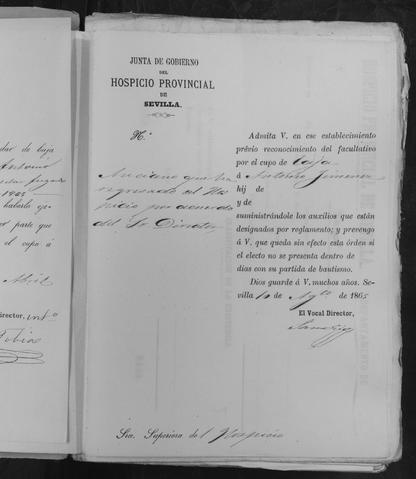 dar de baja
Antonio
1902
haberla
por parte que
el cupo á
Abril
Director, int.º
Tobia
JUNTA DE GOBIERNO
DEL
HOSPICIO PROVINCIAL
DE
SEVILLA.
N.º
Anciano que ha
ingresado en el Hos
picio por acuerdo
del Sr. Director
Admita V. en ese establecimiento
prévio reconocimiento del facultativo
por el cupo de Caja
á Antonio Jimenez
hij de
y de
suministrándole los auxilios que están
designados por reglamento; y prevengo
á V. que queda sin efecto esta órden si
el electo no se presenta dentro de
dias con su partida de bautismo.
Dios guarde á V. muchos años. Se-
villa 10 de Ag.to de 1865
El Vocal Director,
Sra. Superiora del Hospicio